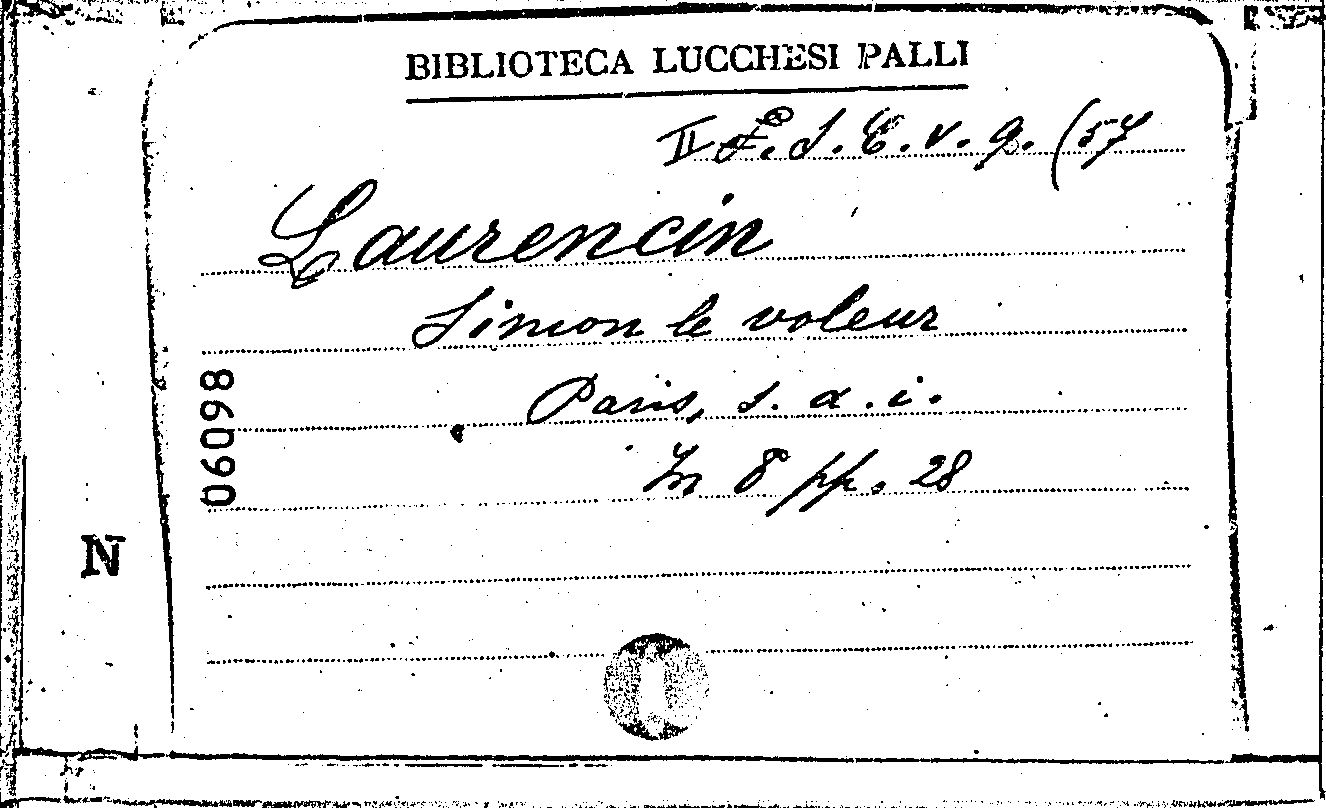 BIBLIOTECA LUCCHESI PALLI
II L. d. C. v. 9. (57
Laurencin
Simon le voleur
Paris, s. a. i.
In 8 pp. 28
06098
N